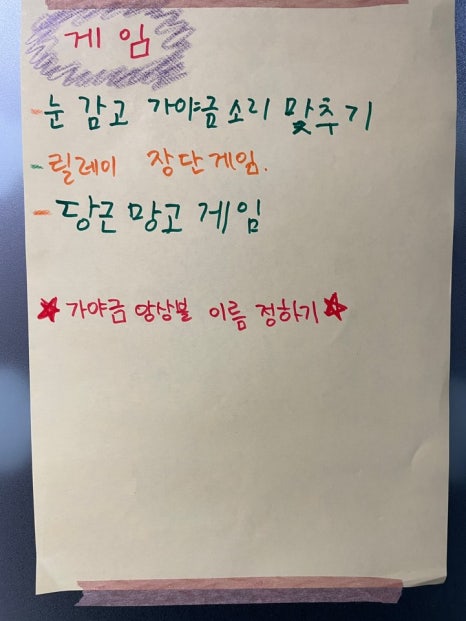 게임
- 눈 감고 가야금소리 맞추기
- 릴레이 장단게임.
- 당근 망고 게임
★ 가야금 앙상블 이름 정하기 ★